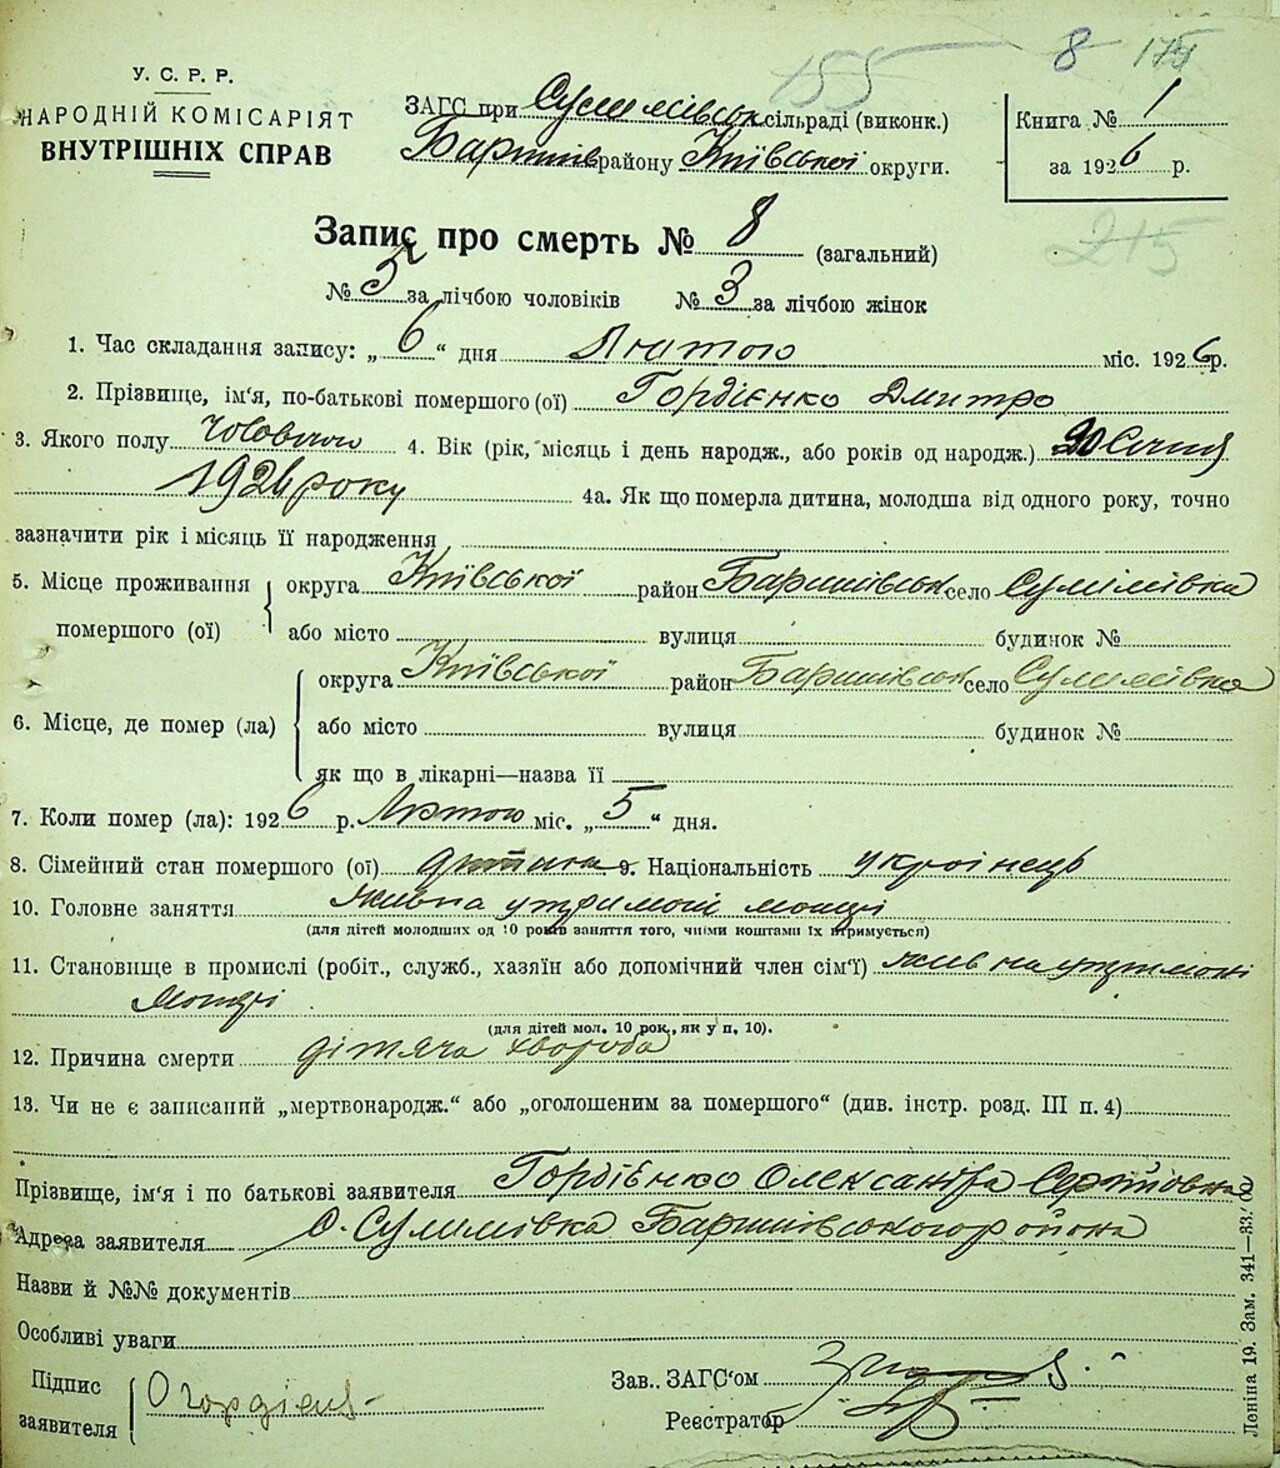 155 8 175
У. С. Р. Р.
НАРОДНІЙ КОМІСАРІЯТ
ВНУТРІШНІХ СПРАВ
ЗАГС при Сулимівськ сільраді (виконк.)
Баришів району Київської округи.
Книга № 1
за 1926 р.
215
Запис про смерть № 8 (загальний)
№ 5 за лічбою чоловіків № 3 за лічбою жінок
1. Час складання запису: „6“ дня Лютого міс. 1926 р.
2. Прізвище, ім'я, по-батькові помершого (ої) Гордієнко Дмитро
3. Якого полу Чоловічого 4. Вік (рік, місяць і день народж., або років од народж.) 20 Січня
192 року 4а. Як що померла дитина, молодша від одного року, точно
зазначити рік і місяць її народження
5. Місце проживання помершого (ої) округа Київської район Баришівськ село Сулимівка
або місто вулиця будинок №
6. Місце, де помер (ла) округа Київської район Баришівськ село Сулимівка
або місто вулиця будинок №
як що в лікарні—назва її
7. Коли помер (ла): 1926 р. Лютого міс. „5“ дня.
8. Сімейний стан помершого (ої) дитина 9. Національність українець
10. Головне заняття жив на утримані матері
(для дітей молодших од 10 років заняття того, чиїми коштами їх втримується)
11. Становище в промислі (робіт., служб., хазяїн або допомічний член сім'ї) жив на утримані
матері
(для дітей мол. 10 рок., як у п. 10).
12. Причина смерти дітяча хвороба
13. Чи не є записаний „мертвонародж.“ або „оголошеним за помершого“ (див. інстр. розд. III п. 4)
Прізвище, ім'я і по батькові заявителя Гордієнко Олександра Сергіївна
Адреса заявителя с. Сулимівка Баришівського району
Назви й №№ документів
Особливі уваги
Підпис заявителя О Гордієнк
Зав. ЗАГС'ом
Реєстратор
Леніна 19. Зам. 341—83.